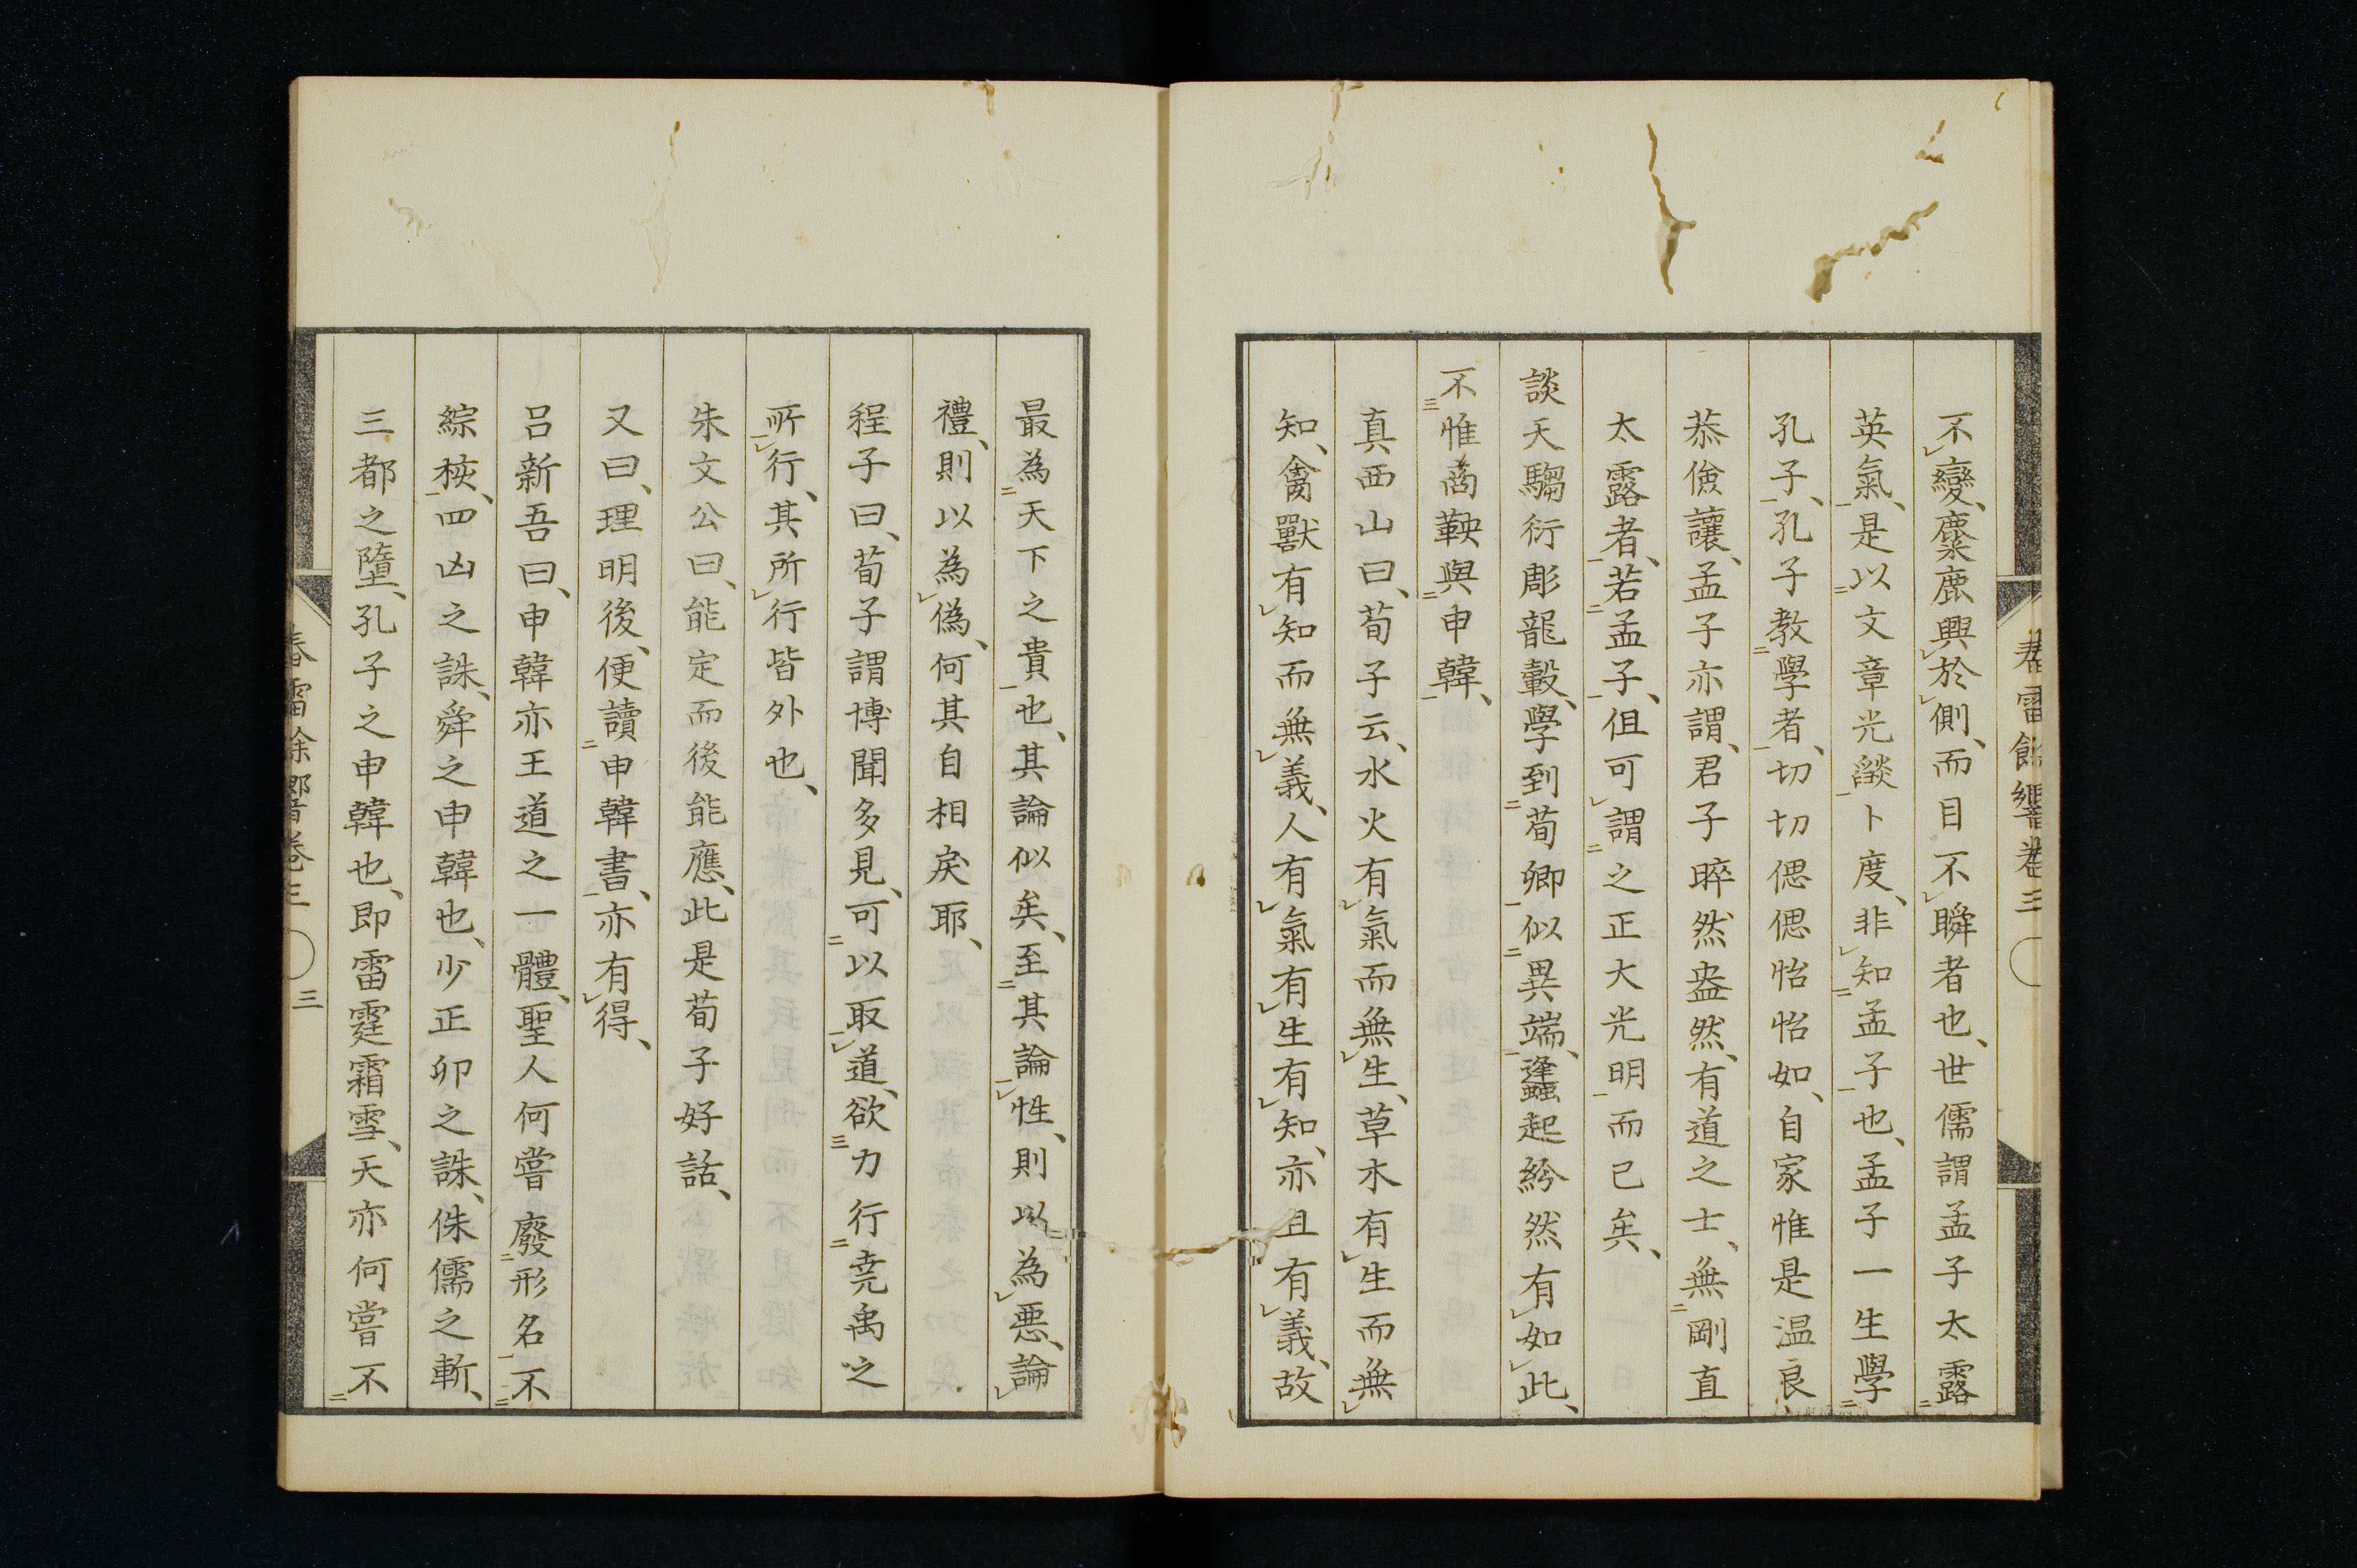 不變、麋鹿興於側、而目不瞬者也、世儒謂孟子太露
英氣、是以文章光燄卜度、非知孟子也、孟子一生學
孔子、孔子教學者、切切偲偲怡怡如、自家惟是温良
恭儉讓、孟子亦謂、君子睟然盎然、有道之士、無剛直
太露者、若孟子、但可謂之正大光明而已矣、
談天騶衍彫龍轂、學到荀卿似異端、蠭起紛然有如此、
不惟商鞅與申韓、
真西山曰、荀子云、水火有氣而無生、草木有生而無
知、禽獸有知而無義、人有氣有生有知、亦且有義、故
最為天下之貴也、其論似矣、至其論性、則以為惡、論
禮、則以為偽、何其自相戾耶、
程子曰、荀子謂博聞多見、可以取道、欲力行堯禹之
所行、其所行皆外也、
朱文公曰、能定而後能應、此是荀子好話、
又曰、理明後、便讀申韓書、亦有得、
呂新吾曰、申韓亦王道之一體、聖人何嘗廢形名不
綜核、四凶之誅、舜之申韓也、少正卯之誅、侏儒之斬、
三都之墮、孔子之申韓也、即雷霆霜雪、天亦何嘗不
春雷餘響卷三
三